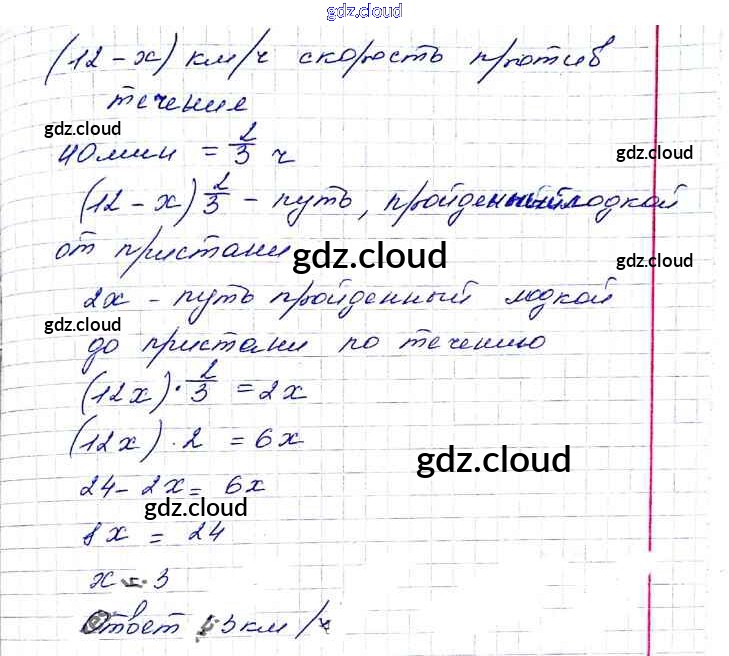 gdz.cloud
(12 - x) км/ч скорость против
течение
gdz.cloud
40 мин = 2/3 ч
gdz.cloud
(12 - x) 2/3 - путь, пройденный лодкой
от пристани
gdz.cloud
gdz.cloud
2x - путь пройденный лодкой
gdz.cloud
до пристани по течению
(12x) · 2/3 = 2x
(12x) · 2 = 6x
gdz.cloud
24 - 2x = 6x
gdz.cloud
8x = 24
x = 3
Ответ 3 км/ч